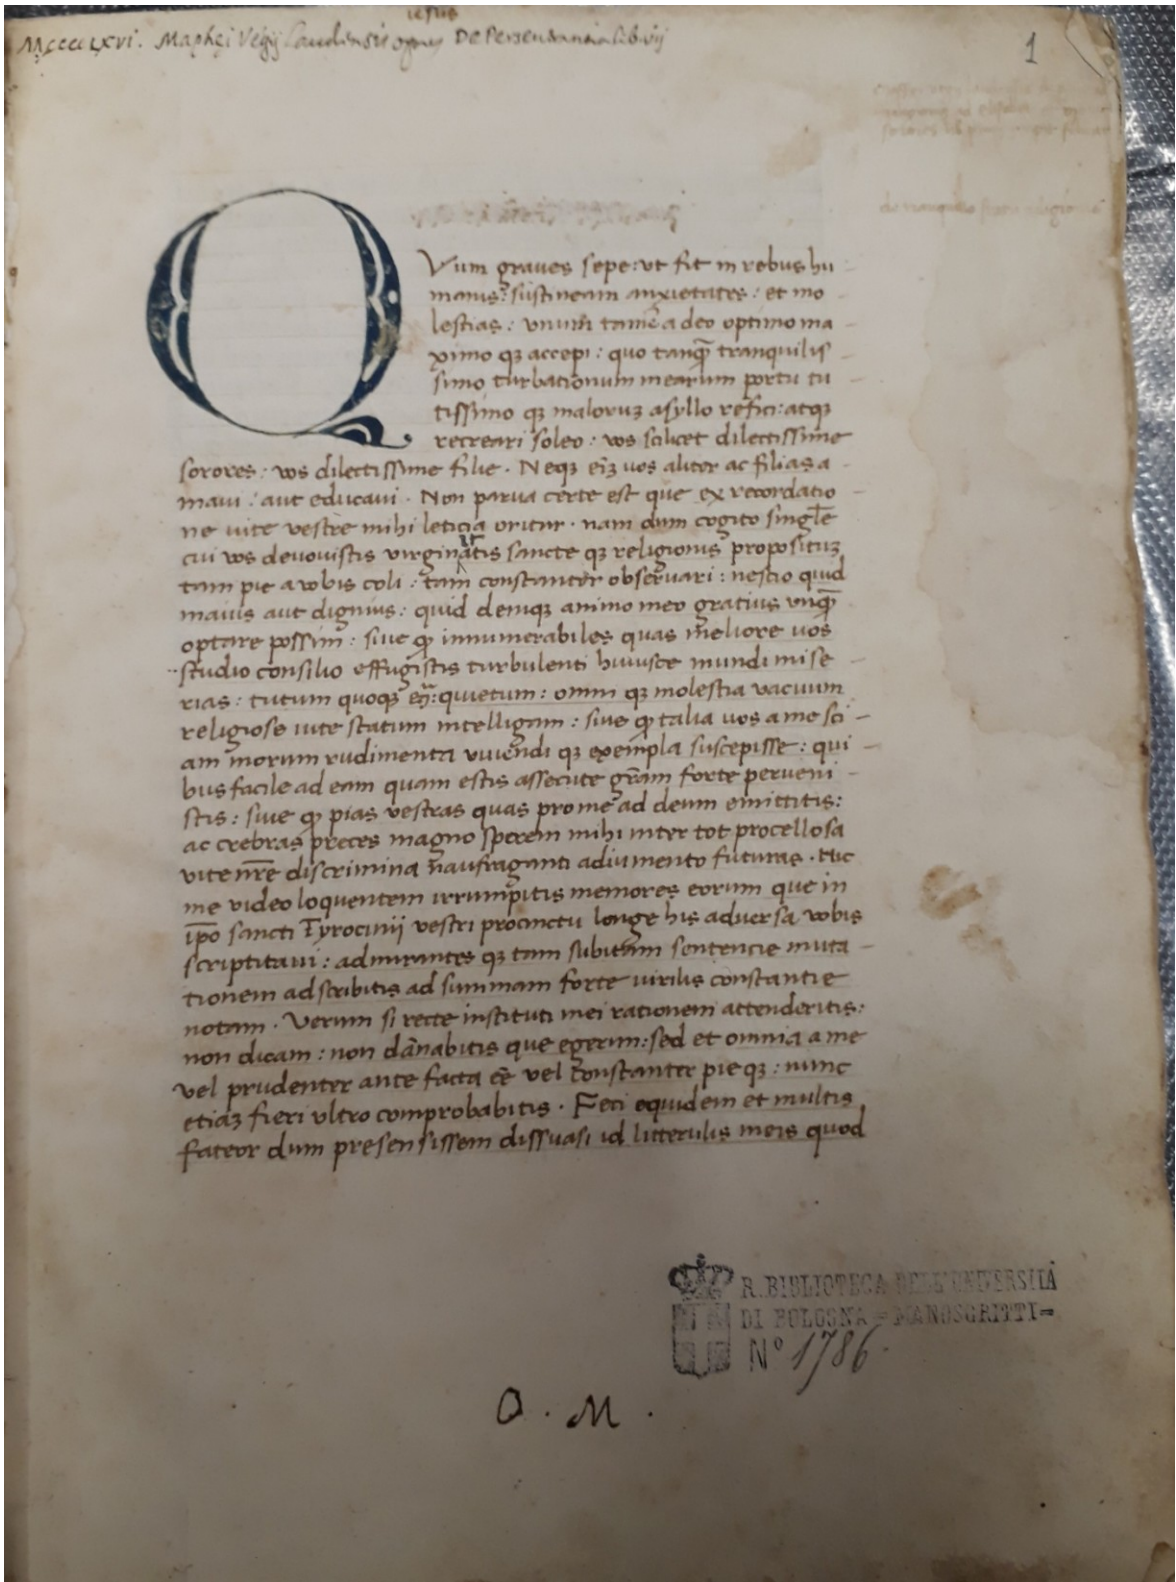 iesus
Mcccclxvi. Maphei Vegij Laudensis De Perseverancia lib. vij
1
QVum graues sepe: vt fit in rebus hu
manis: sustineam anxietates: et mo
lestias: vnum tamē a deo optimo ma
ximo qꝫ accepi: quo tanq̄ tranquilis
simo turbationum mearum portu tu
tissimo qꝫ maloruꝫ asyllo refici: atqꝫ
recreari soleo: vos scilicet dilectissime
sorores: vos dilectissime filie. Neqꝫ eīꝫ vos aliter ac filias a
maui: aut educaui. Non parua certe est que ex recordatio
ne uite vestre mihi leticia oritur. nam dum cogito
cui vos deuouistis virginitatis sancte qꝫ religionis proposituꝫ
tam pie a vobis coli: tam constanter obseruari: nescio quid
maius aut dignius: quid deniqꝫ animo meo gratius vnq̄
optare possim: siue ꝙ innumerabiles quas meliore uos
studio consilio effugistis turbulenti huiusce mundi mise
rias: tutum quoqꝫ quietum: omni qꝫ molestia vacuum
religiose uite statum intelligam: siue ꝙ talia uos a me sci
am morum rudimenta viuendi qꝫ exempla suscepisse: qui
bus facile ad eam quam estis assecute grām forte perueni
stis: siue ꝙ pias vestras quas pro me ad deum emittitis:
ac crebras preces magno sperem mihi inter tot procellosa
vite nr̄e discrimina naufraganti adiumento futuras. Hic
me video loquentem irrumpitis memores eorum que in
ip̄o sancti Tyrocinij vestri procinctu longe his aduersa vobis
scriptitaui: admirantes qꝫ tam subitam sentencie muta
tionem adscribitis ad summam forte virilis constantie
notam. Verum si recte instituti mei rationem attenderitis:
non dicam: non dānabitis que egerim: sed et omnia a me
vel prudenter ante facta eē vel constanter pie qꝫ: nunc
etiaꝫ fieri vltro comprobabitis. Feci equidem et multis
fateor dum presensissem dissuasi id litterulis meis quod
R. BIBLIOTECA DELL'UNIVERSITÀ
DI BOLOGNA = MANOSCRITTI =
N° 1786.
O. M.